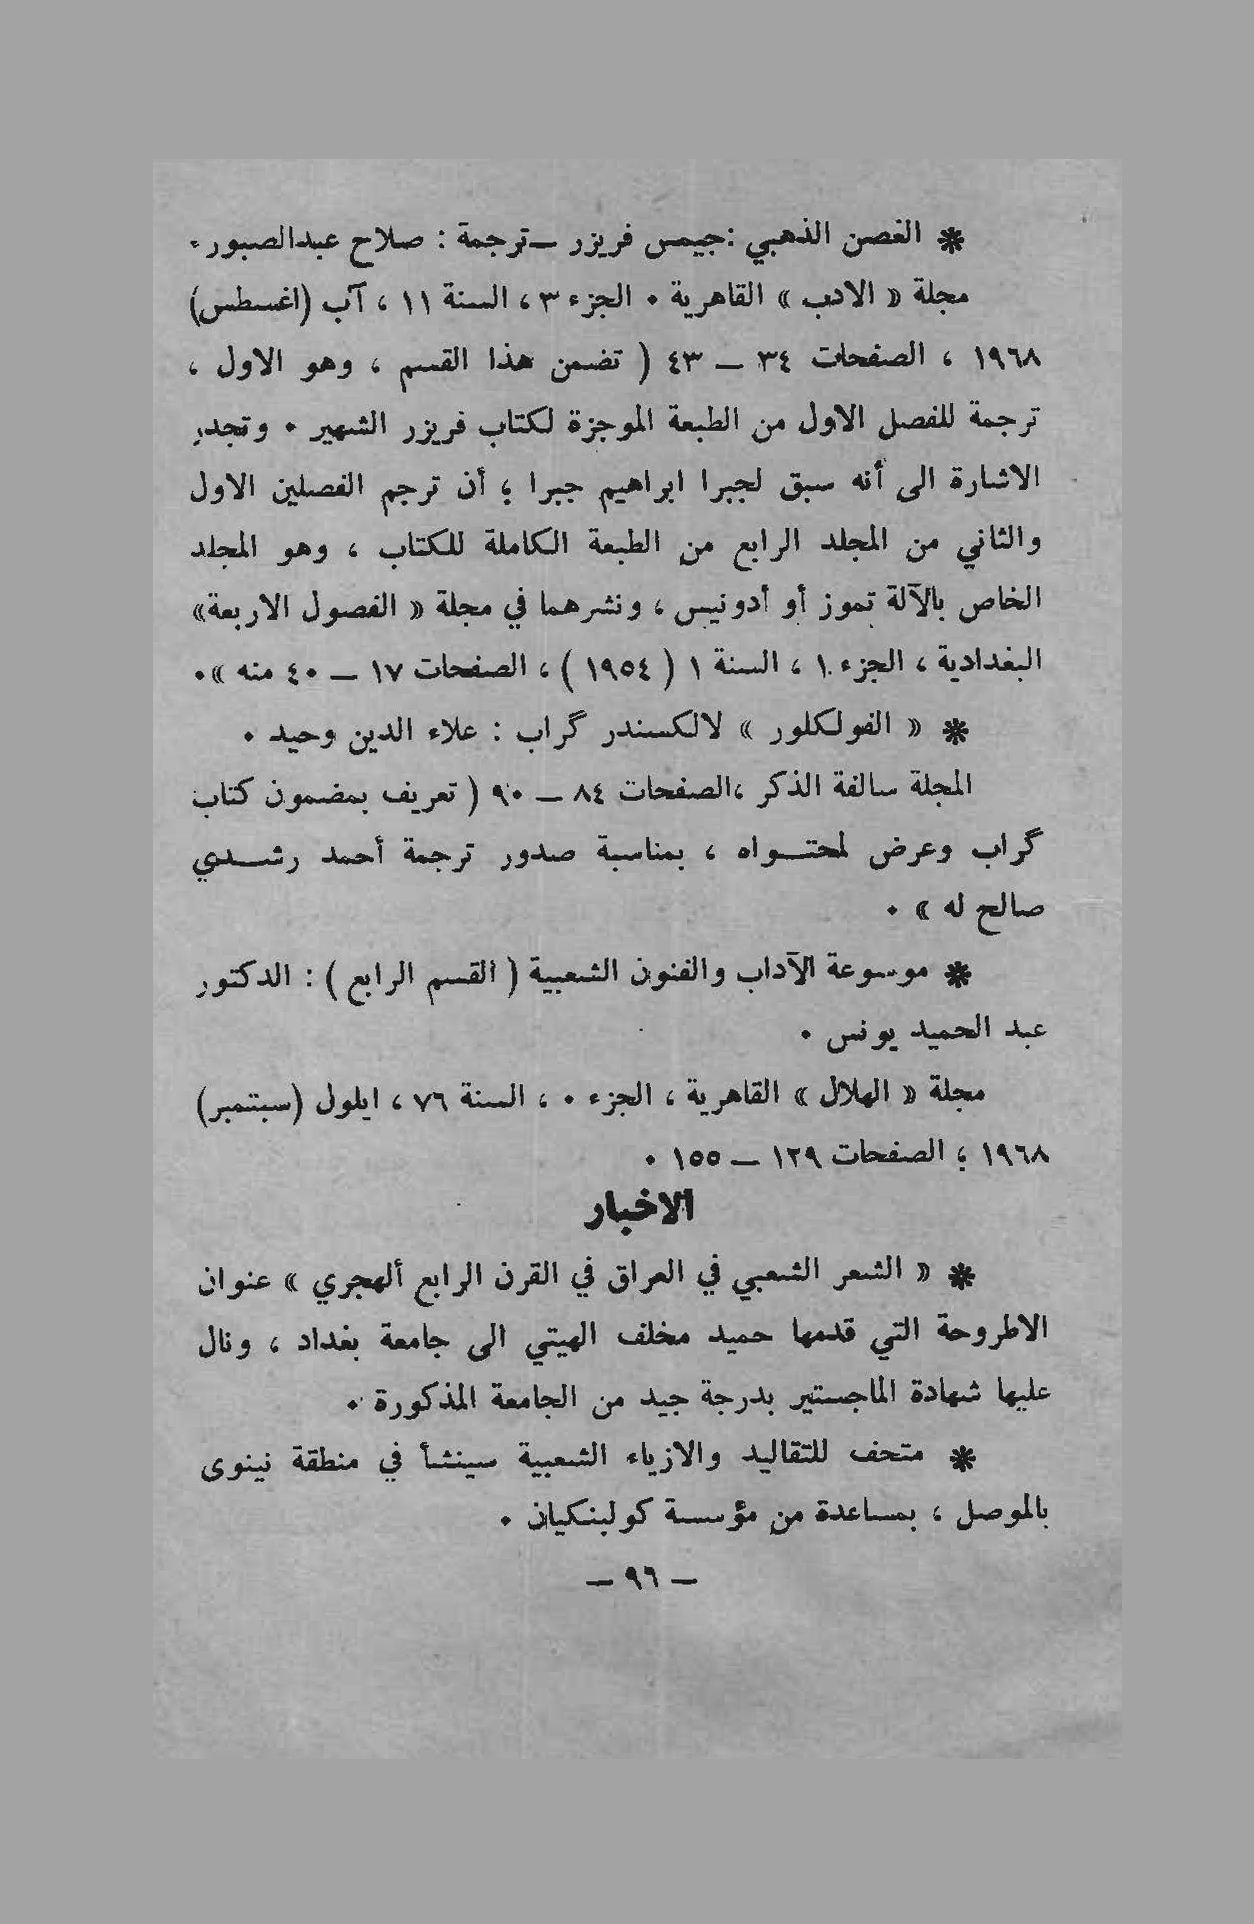 * الغصن الذهبي :جيمس فريزر –ترجمة : صلاح عبدالصبور٠
مجلة « الادب » القاهرية ٠ الجزء ٣ ، السنة ١١ ، آب (اغسطس)
١٩٦٨ ، الصفحات ٣٤ – ٤٣ ( تضمن هذا القسم ، وهو الاول ،
ترجمة للفصل الاول من الطبعة الموجزة لكتاب فريزر الشهير ٠ وتجدر
الاشارة الى أنه سبق لجبرا ابراهيم جبرا ؛ أن ترجم الفصلين الاول
والثاني من المجلد الرابع من الطبعة الكاملة للكتاب ، وهو المجلد
الخاص بالآلة تموز أو أدونيس ، ونشرهما في مجلة « الفصول الاربعة»
البغدادية ، الجزء ١ ، السنة ١ ( ١٩٥٤ ) ، الصفحات ١٧ – ٤٠ منه »٠
* « الفولكلور » لالكسندر گراب : علاء الدين وحيد ٠
المجلة سالفة الذكر ،الصفحات ٨٤ – ٩٠ ( تعريف بمضمون كتاب
گراب وعرض لمحتواه ، بمناسبة صدور ترجمة أحمد رشدي
صالح له » ٠
* موسوعة الآداب والفنون الشعبية ( القسم الرابع ) : الدكتور
عبد الحميد يونس ٠
مجلة « الهلال » القاهرية ، الجزء ٠ ، السنة ٧٦ ، ايلول (سبتمبر)
١٩٦٨ ؛ الصفحات ١٢٩ – ١٥٥ ٠
الاخبار
* « الشعر الشعبي في العراق في القرن الرابع ألهجري » عنوان
الاطروحة التي قدمها حميد مخلف الهيتي الى جامعة بغداد ، ونال
عليها شهادة الماجستير بدرجة جيد من الجامعة المذكورة ٠
* متحف للتقاليد والازياء الشعبية سينشأ في منطقة نينوى
بالموصل ، بمساعدة من مؤسسة كولبنكيان ٠
– ٩٦ –